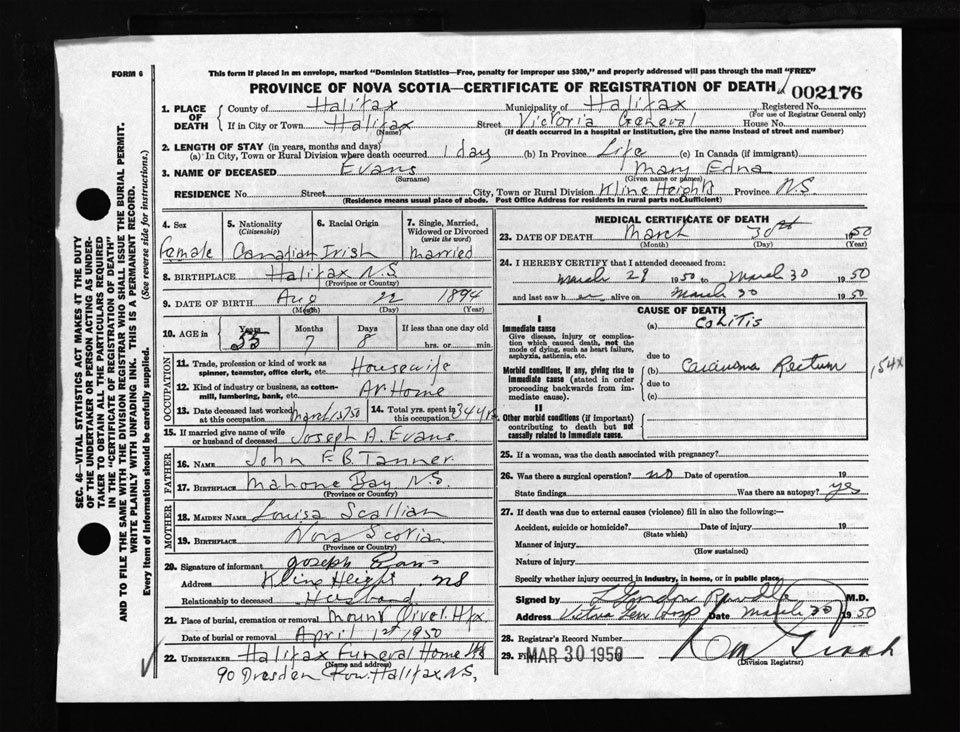 FORM 6
This form if placed in an envelope, marked "Dominion Statistics—Free, penalty for improper use $300," and properly addressed will pass through the mail "FREE"
PROVINCE OF NOVA SCOTIA—CERTIFICATE OF REGISTRATION OF DEATH
002176
1. PLACE OF DEATH
County of Halifax Municipality of Halifax Registered No.
(For use of Registrar General only)
If in City or Town Halifax Street Victoria General House No.
(Name) (If death occurred in a hospital or institution, give the name instead of street and number)
2. LENGTH OF STAY (in years, months and days)
(a) In City, Town or Rural Division where death occurred 1 day (b) In Province Life (c) In Canada (if immigrant)
3. NAME OF DECEASED Evans Mary Edna
(Surname) (Given name or names)
RESIDENCE No. Street City, Town or Rural Division Kline Heights Province N.S.
(Residence means usual place of abode. Post Office Address for residents in rural parts not sufficient)
4. Sex Female
5. Nationality (Citizenship) Canadian
6. Racial Origin Irish
7. Single, Married, Widowed or Divorced (write the word) Married
8. BIRTHPLACE Halifax N.S.
(Province or Country)
9. DATE OF BIRTH Aug 22 1894
(Month) (Day) (Year)
10. AGE in Years 55 Months 7 Days 8 If less than one day old
hrs. or min.
OCCUPATION
11. Trade, profession or kind of work as spinner, teamster, office clerk, etc. Housewife
12. Kind of industry or business, as cotton-mill, lumbering, bank, etc. At Home
13. Date deceased last worked at this occupation March 15/50
14. Total yrs. spent in this occupation 34 yrs
15. If married give name of wife or husband of deceased Joseph A. Evans
FATHER
16. NAME John F.B. Tanner
17. BIRTHPLACE Mahone Bay N.S.
(Province or Country)
MOTHER
18. MAIDEN NAME Louisa Scallian
19. BIRTHPLACE Nova Scotia
(Province or Country)
20. Signature of informant Joseph Evans
Address Kline Height NS
Relationship to deceased Husband
21. Place of burial, cremation or removal Mount Olivet Hfx.
Date of burial or removal April 1st 1950
22. UNDERTAKER Halifax Funeral Home
(Name and address)
90 Dresden Row. Halifax N.S.
MEDICAL CERTIFICATE OF DEATH
23. DATE OF DEATH March 30th 1950
(Month) (Day) (Year)
24. I HEREBY CERTIFY that I attended deceased from:
March 29 1950 to March 30 1950
and last saw her alive on March 30 1950
CAUSE OF DEATH
I
Immediate cause
Give disease, injury or complication which caused death, not the mode of dying, such as heart failure, asphyxia, asthenia, etc.
(a) Colitis
due to
Morbid conditions, if any, giving rise to immediate cause (stated in order proceeding backwards from immediate cause).
(b) Carcinoma Rectum
154x
due to
(c)
II
Other morbid conditions (if important) contributing to death but not causally related to immediate cause.
25. If a woman, was the death associated with pregnancy?
26. Was there a surgical operation? no Date of operation 19
State findings Was there an autopsy? yes
27. If death was due to external causes (violence) fill in also the following—
Accident, suicide or homicide? Date of injury 19
(State which)
Manner of injury
(How sustained)
Nature of injury
Specify whether injury occurred in industry, in home, or in public place.
Signed by Gordon M.D.
Address Date March 30 1950
28. Registrar's Record Number
29. MAR 30 1950
(Division Registrar)
SEC. 46—VITAL STATISTICS ACT MAKES IT THE DUTY
OF THE UNDERTAKER OR PERSON ACTING AS UNDER-
TAKER TO OBTAIN ALL THE PARTICULARS REQUIRED
IN THE "CERTIFICATE OF REGISTRATION OF DEATH"
AND TO FILE THE SAME WITH THE DIVISION REGISTRAR WHO SHALL ISSUE THE BURIAL PERMIT.
WRITE PLAINLY WITH UNFADING INK. THIS IS A PERMANENT RECORD.
Every item of information should be carefully supplied. (See reverse side for instructions.)